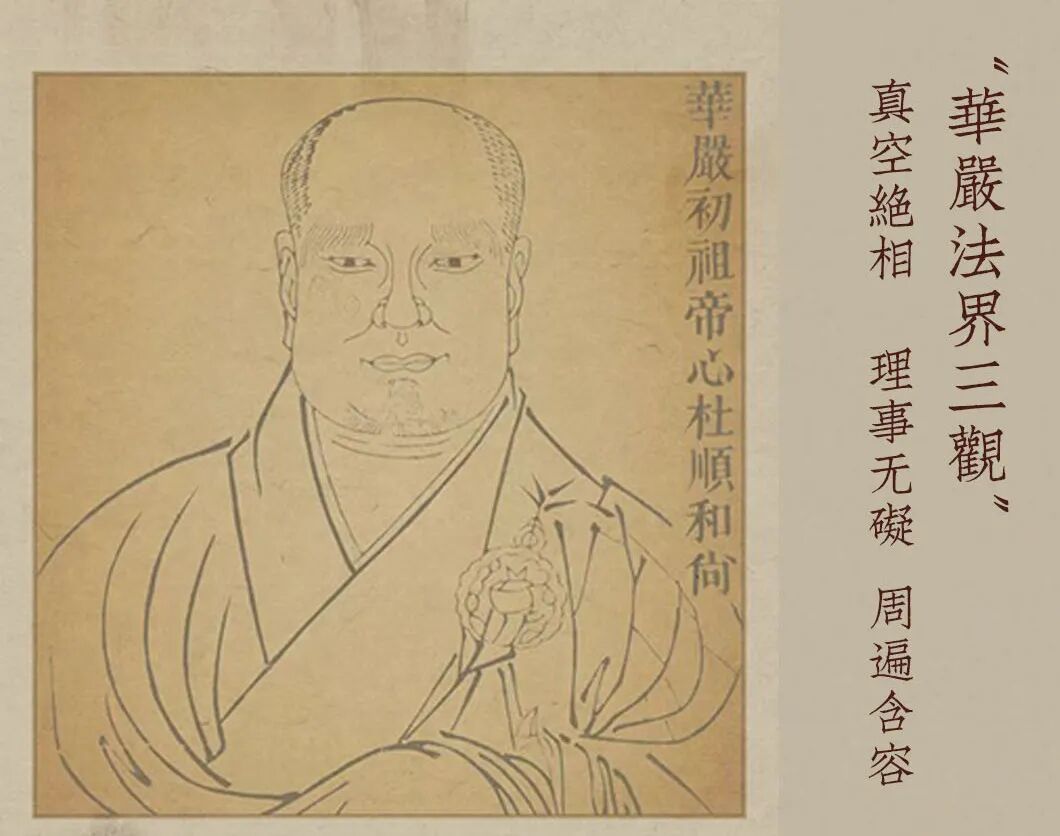 〝華嚴法界三觀〞
真空絕相 理事无礙 周遍含容
華嚴初祖帝心杜順和尚